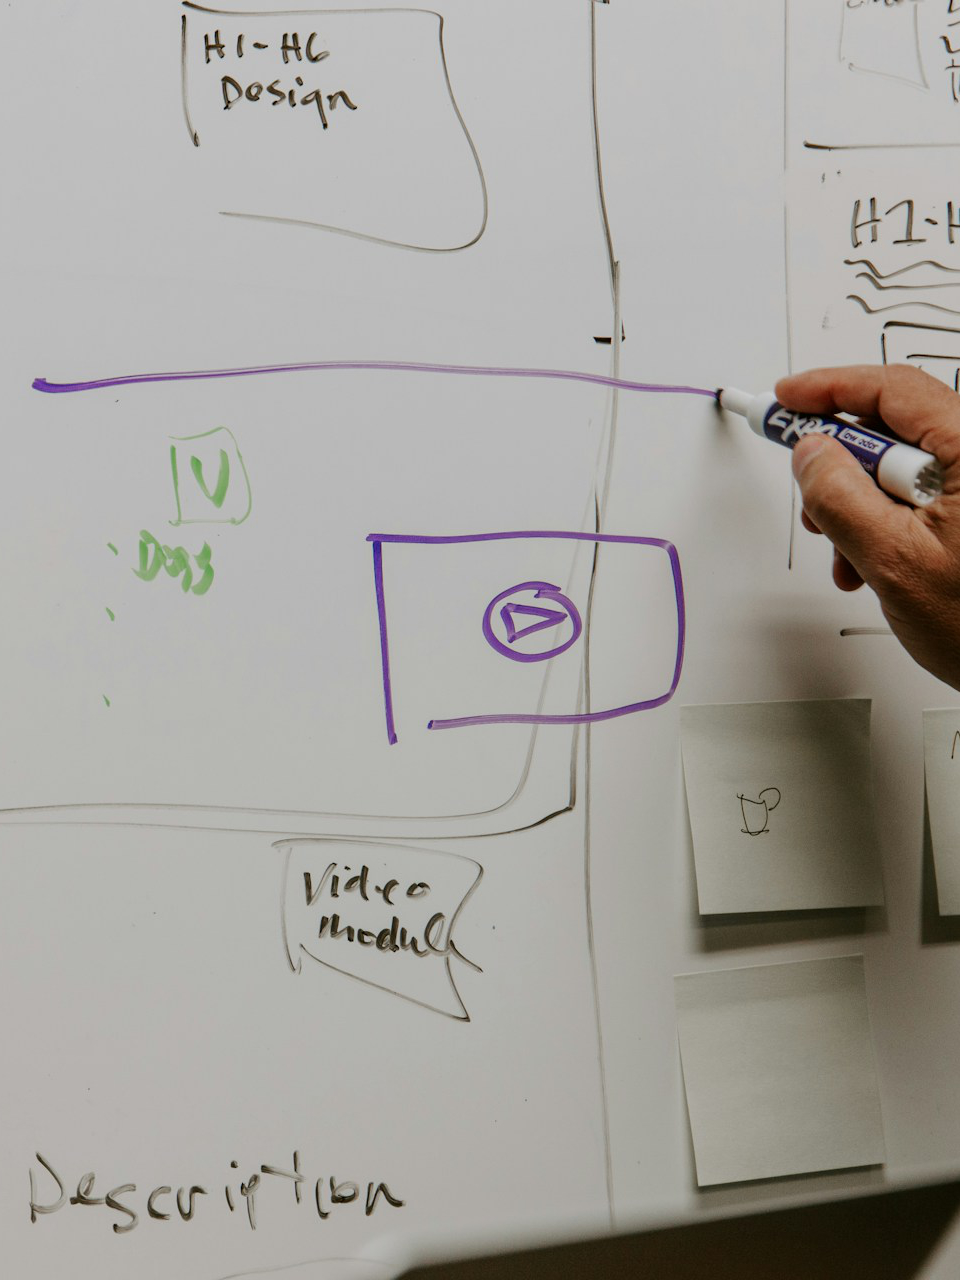 H1-H6
Design
H1-H
EXPO
low odor
V
Dogs
Video
Module
Description